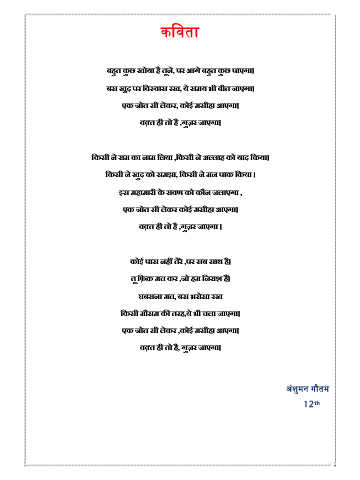 कविता
बहुत कुछ खोया है तूने, पर आगे बहुत कुछ पाएगा|
बस खुद पर विश्वास रख, ये समय भी बीत जाएगा|
एक जोत सी लेकर, कोई मसीहा आएगा|
वक़्त ही तो है ,गुज़र जाएगा|
किसी ने राम का नाम लिया ,किसी ने अल्लाह को याद किया|
किसी ने खुद को समझा, किसी ने मन पाक किया |
इस महामारी के रावण को कौन जलाएगा ,
एक जोत सी लेकर कोई मसीहा आएगा|
वक़्त ही तो है ,गुज़र जाएगा |
कोई पास नहीं तेरे ,पर सब साथ है|
तू फ़िक्र मत कर ,जो हम निराश हैं|
घबराना मत, बस भरोसा रख
किसी मौसम की तरह,ये भी चला जाएगा|
एक जोत सी लेकर ,कोई मसीहा आएगा|
वक़्त ही तो है, गुज़र जाएगा|
अंशुमन गौतम
12th